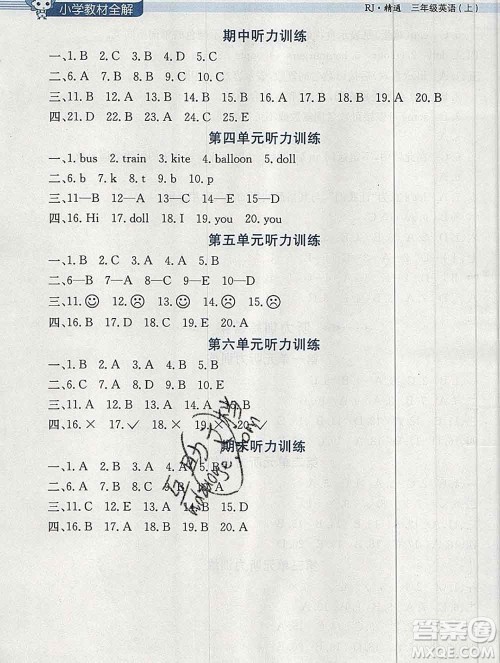 小学教材全解
RJ·精通 三年级英语(上)
期中听力训练
一、1. B 2. C 3. A 4. C 5. B
二、6. A 7. B 8. C 9. B 10. A
三、11. B 12. B 13. A 14. B 15. A 16. B 17. B 18. A 19. A 20. B
四、21. D 22. A 23. B 24. C 25. E
第四单元听力训练
一、1. bus 2. train 3. kite 4. balloon 5. doll
二、6. b 7. k 8. t 9. b 10. p
三、11—B 12—A 13—C 14—E 15—D
四、16. Hi 17. doll 18. I 19. you 20. you
第五单元听力训练
一、1. B 2. C 3. A 4. C 5. B
二、6—B 7—A 8—C 9—E 10—D
三、11.☺ 12.☹ 13.☹ 14.☺ 15.☹
四、16. B 17. D 18. C 19. E 20. A
第六单元听力训练
一、1. B 2. A 3. C 4. B 5. A
二、6. C 7. A 8. A 9. B
三、11. A 12. B 13. A 14. B 15. B
四、16. × 17. ✓ 18. × 19. × 20. ✓
期末听力训练
一、1. A 2. B 3. C 4. A 5. B
四、16. B 17. A 18. A 19. B 20. A
答案圈
MXQE.COM